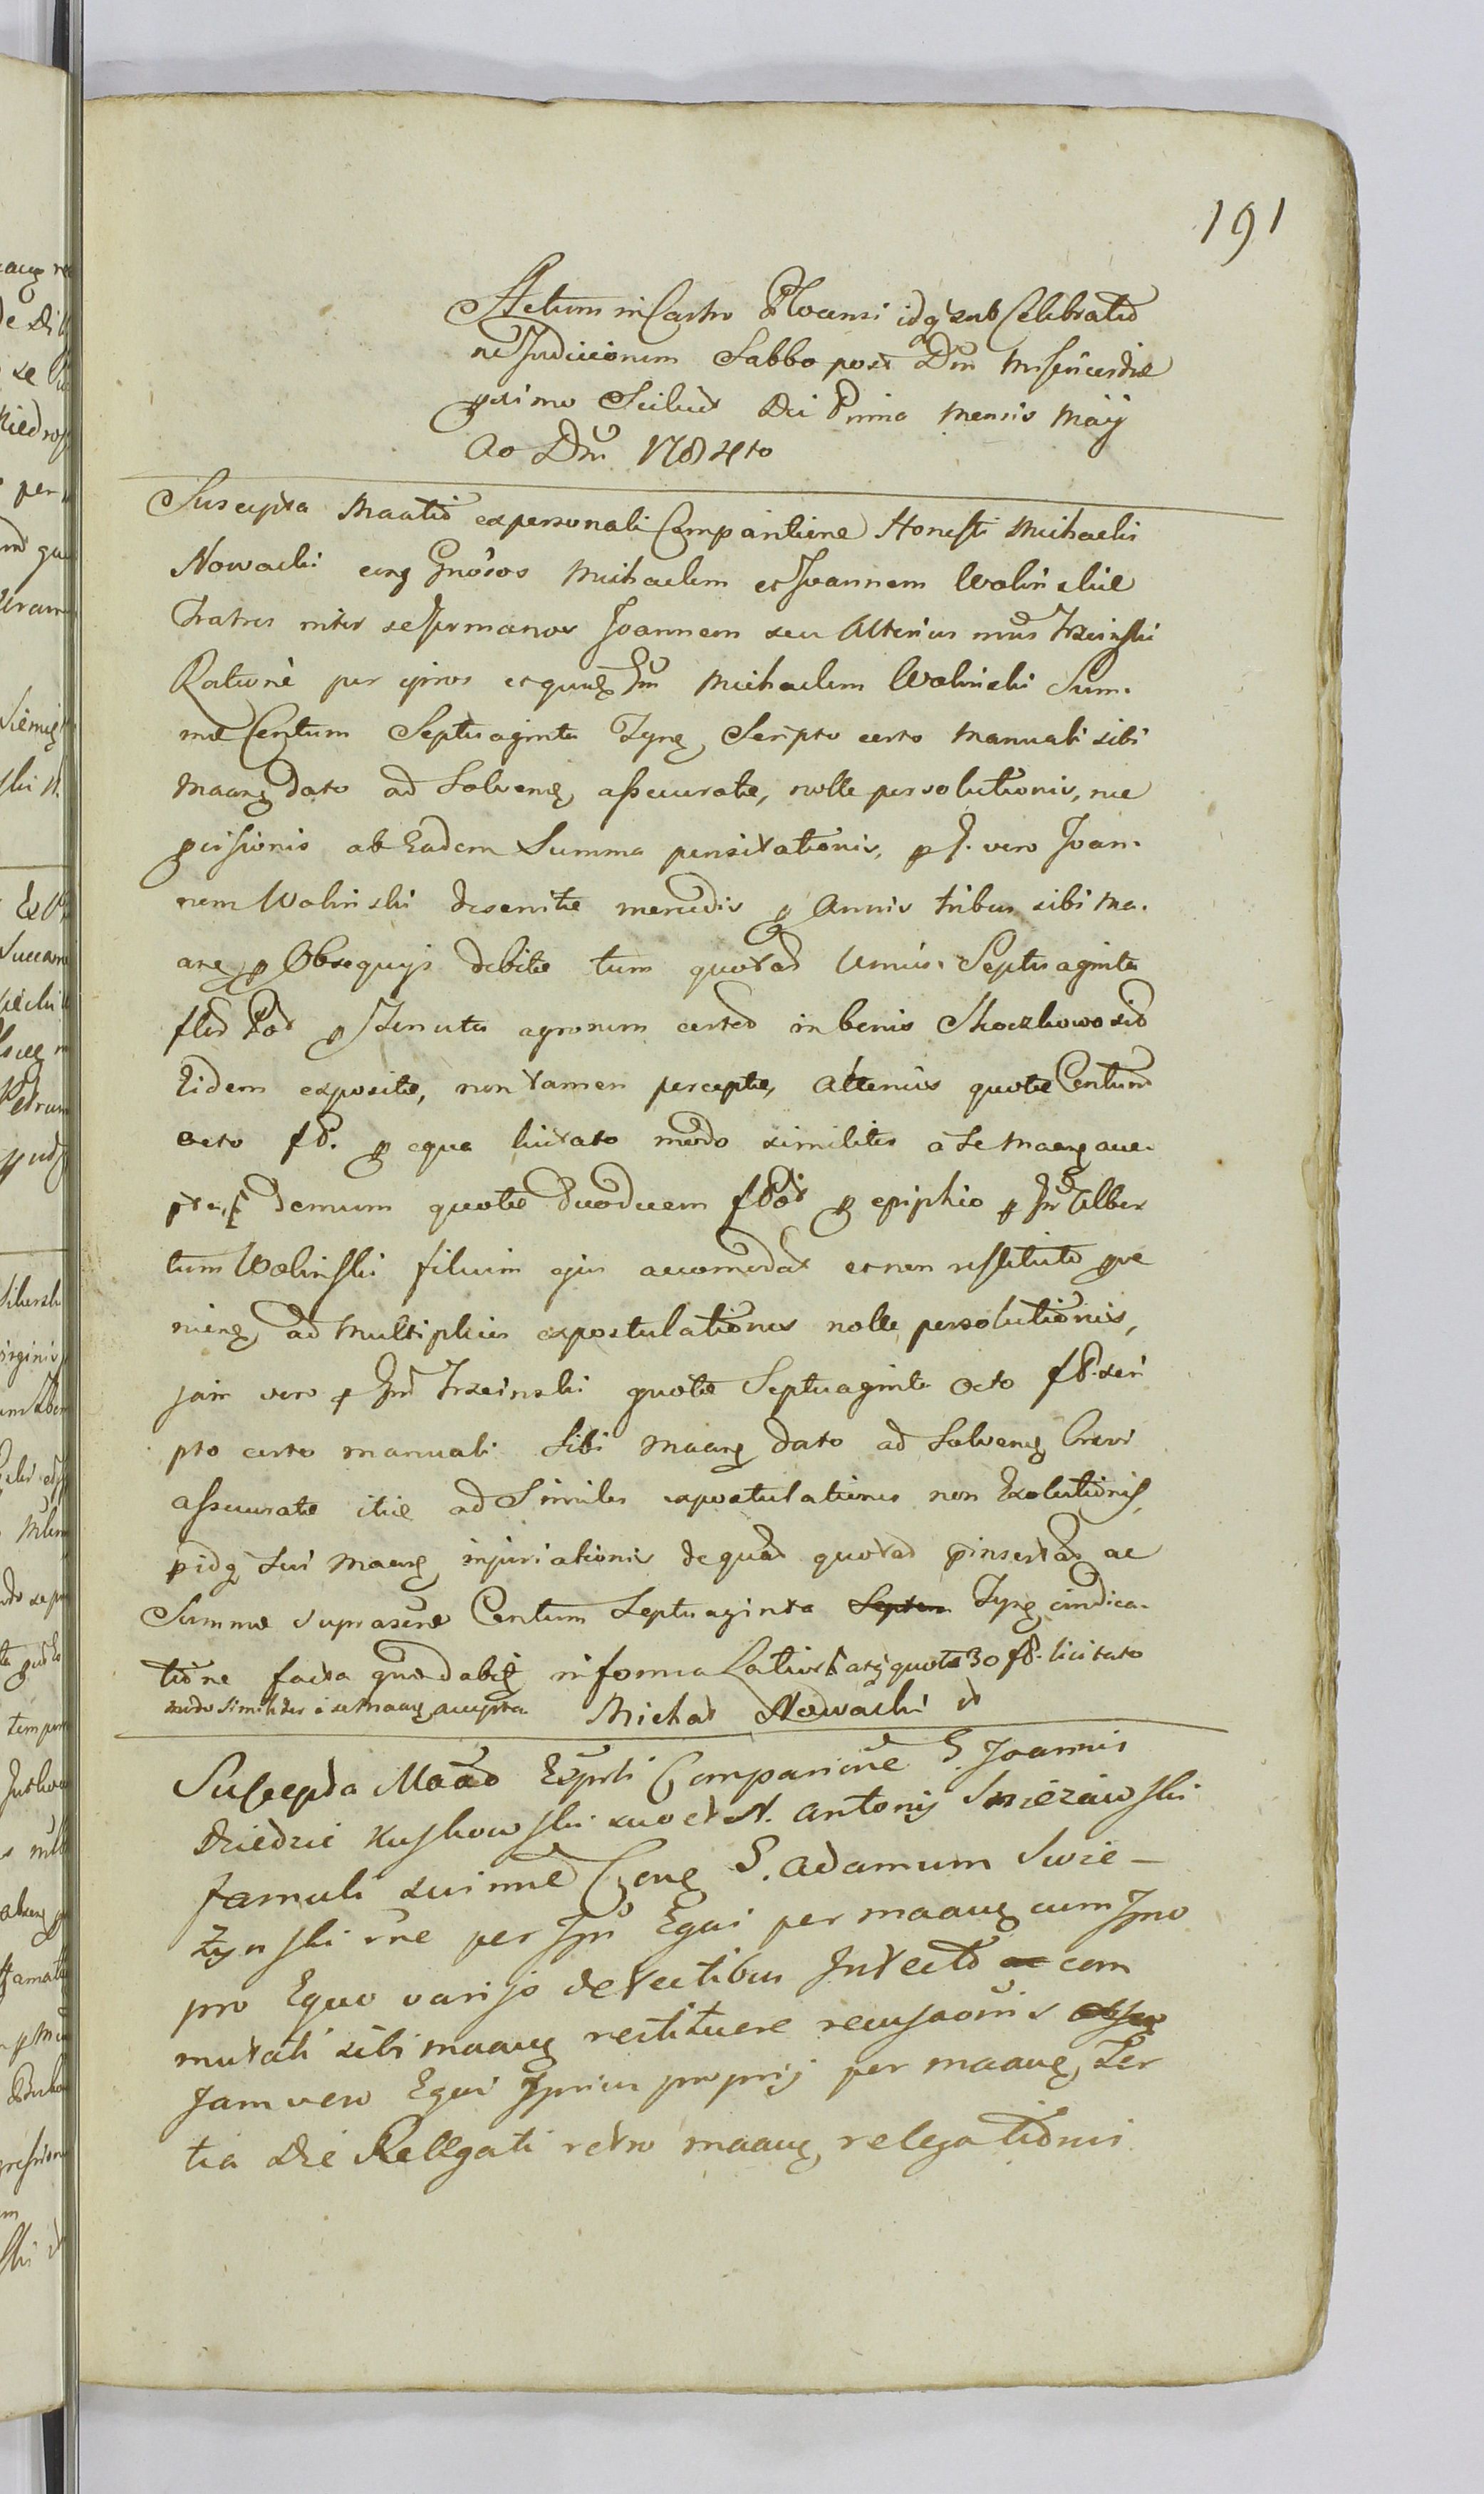 191
Actum in Castro Plocensi idq sub Celebratio
ne Judiciorum Sabbo post Dm Misericordiæ
proximo Scilicet Die Prima Mensis Maij
Ao Dni 1784to
Suscepta Maatio ex personali Comparitione Honesti Michaelis
Nowacki cong Gnosos Michaelem et Joannem Wolinskie
Fratres inter se Germanos Joannem seu Alterius nnis Trzcinski
Ratione per ipsos et quidem Gm Michaelem Wolinski Sum-
mæ Centum Septuaginta Tynf Scripto certo Manuali sibi
Maang dato ad Solvend assecuratæ, nolle persolutionis, nec
provisionis ab Eadem Summa pensitationis, p G. vero Joan-
nem Wolinski deservitæ mercedis p Annis tribus sibi Ma-
ang p Obsequijs debitæ tum quotas Unius Septuaginta
flor Pol p Tenuta agrorum certor in bonis Skoczkowo sic
Eidem expositæ, non tamen perceptæ, Alterius quotæ Centum
octo fl. p equa licitato modo similiter a se Maang acce-
ptæ, Demum quotæ duodecim fl Pol p epiphio p Gm Alber
tum Wolinski filium ejus accomodat et non restituto prove
nieng ad Multiplices expostulationes nolle persolutionis,
jam vero p Gm Trzcinski quotæ Septuaginta Octo fl. scri
pto certo manuali Sibi Maang dato ad Solvend brevi
assecuratæ itie ad Similes expostulationes non Exolutionis,
pidq Sui Maang injuriationis de quibus quotas pinsertas ac
Summæ suprascæ Centum Septuaginta Septem Tynf vindica-
tione facta quærendabit in forma Latiori atq quotæ 30 fl. licitato
modo similiter a se Maang accepta. Michał Nowacki it
Suscepta Maao Exprli Comparione G. Joannis
Dziedzic Kuskowski suo et N. Antonij Snieżawski
famuli sui nne Cong G. Adamum Swie-
żynski rne per Ipm Equi per maang cum Ipso
pro Equo varijs defectibus Infecto ac com
mutati sibi maang restituere recusaonis
Jam vero Equi Ipsius proprij per maang Ter
tia Die Relegati retro maang relegationis